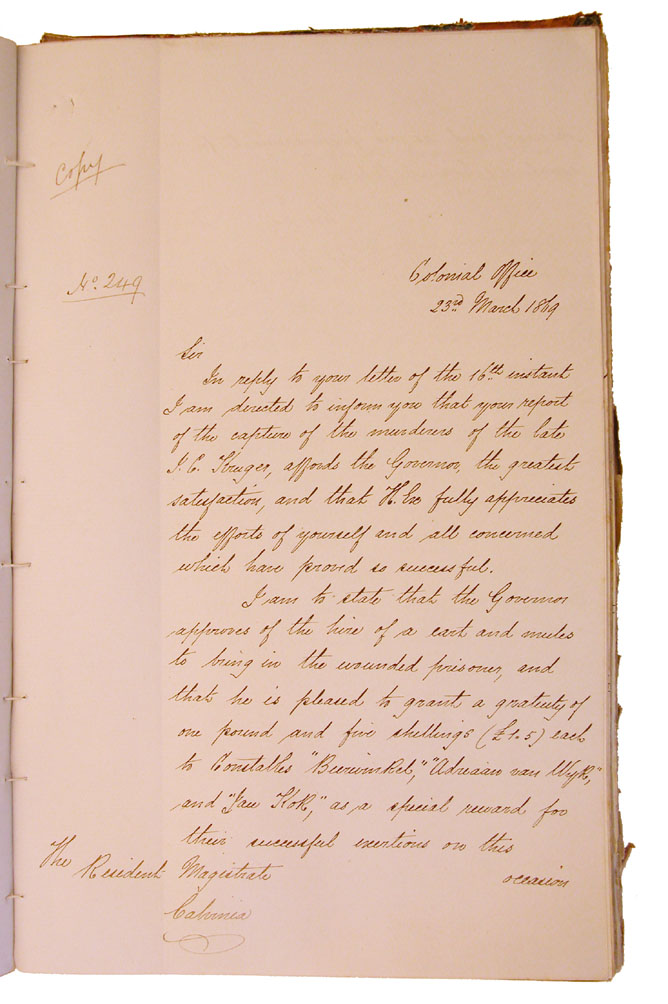 Copy
No. 249
Colonial Office
23rd March 1869
Sir
In reply to your letter of the 16th instant
I am directed to inform you that your report
of the capture of the murderers of the late
J. C. Kruger, affords the Governor, the greatest
satisfaction, and that H. Ex fully appreciates
the efforts of yourself and all concerned
which have proved so successful.
I am to state that the Governor
approves of the hire of a cart and mules
to bring in the wounded prisoner, and
that he is pleased to grant a gratuity of
one pound and five shillings (£1.5) each
to Constables "Burwinkel," "Adriaan van Wyk,"
and "Jan Kok," as a special reward for
their successful exertions on this
The Resident Magistrate occasion
Calvinia